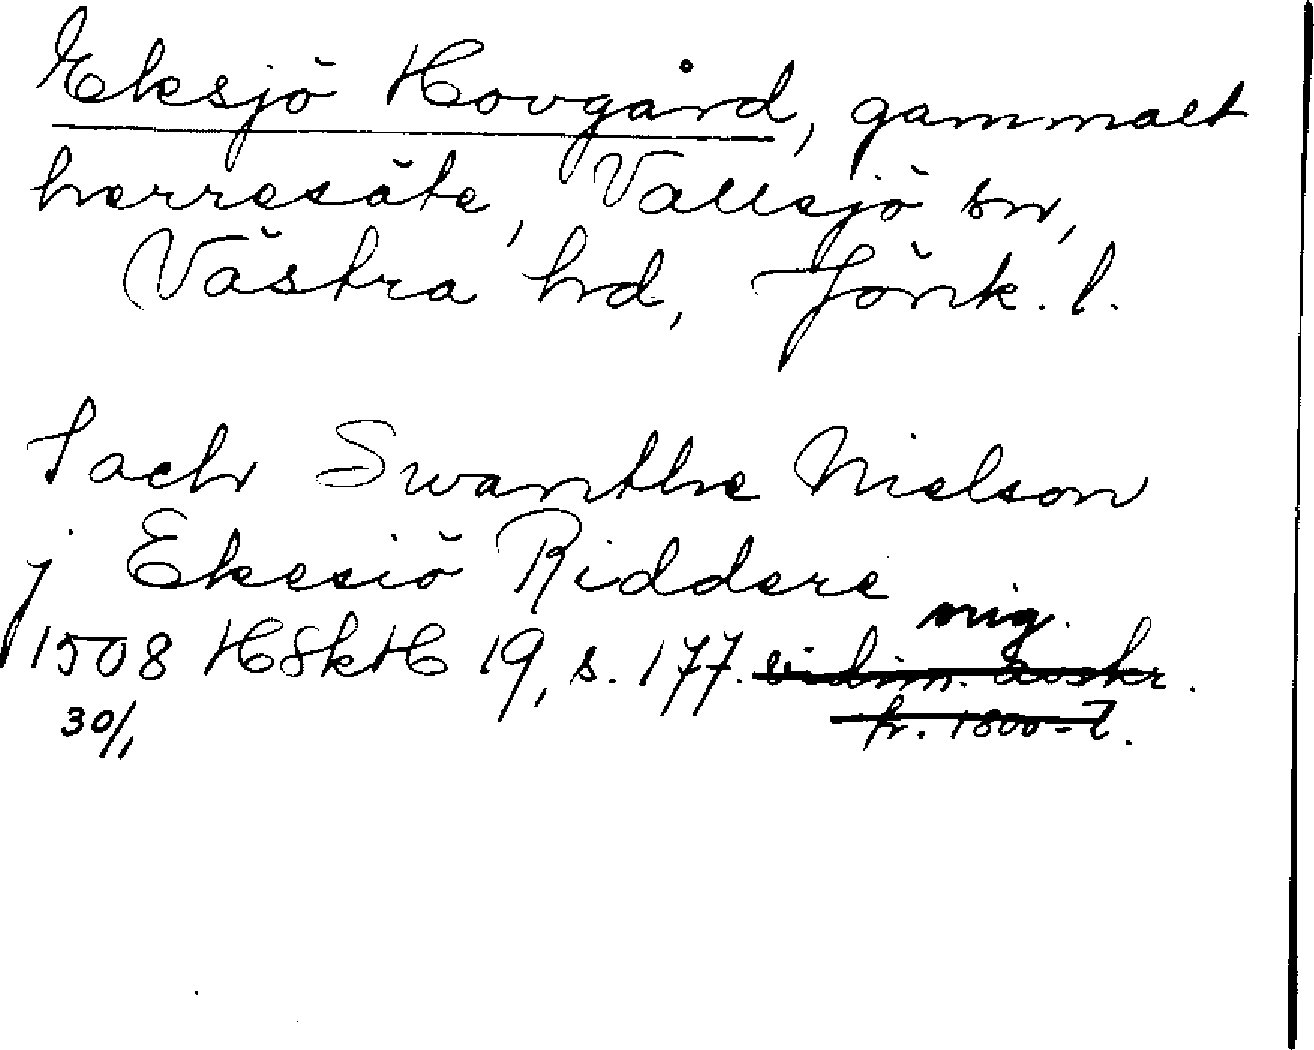 Eksjö Hovgård, gammalt
herresäte, Vallsjö sn,
Västra hd, Jönk. l.
Iach Swanthe Nielson
j Ekesiö Riddere
orig.
1508 HSkH 19, s. 177. vidim. avskr.
30/1 fr. 1800-t.